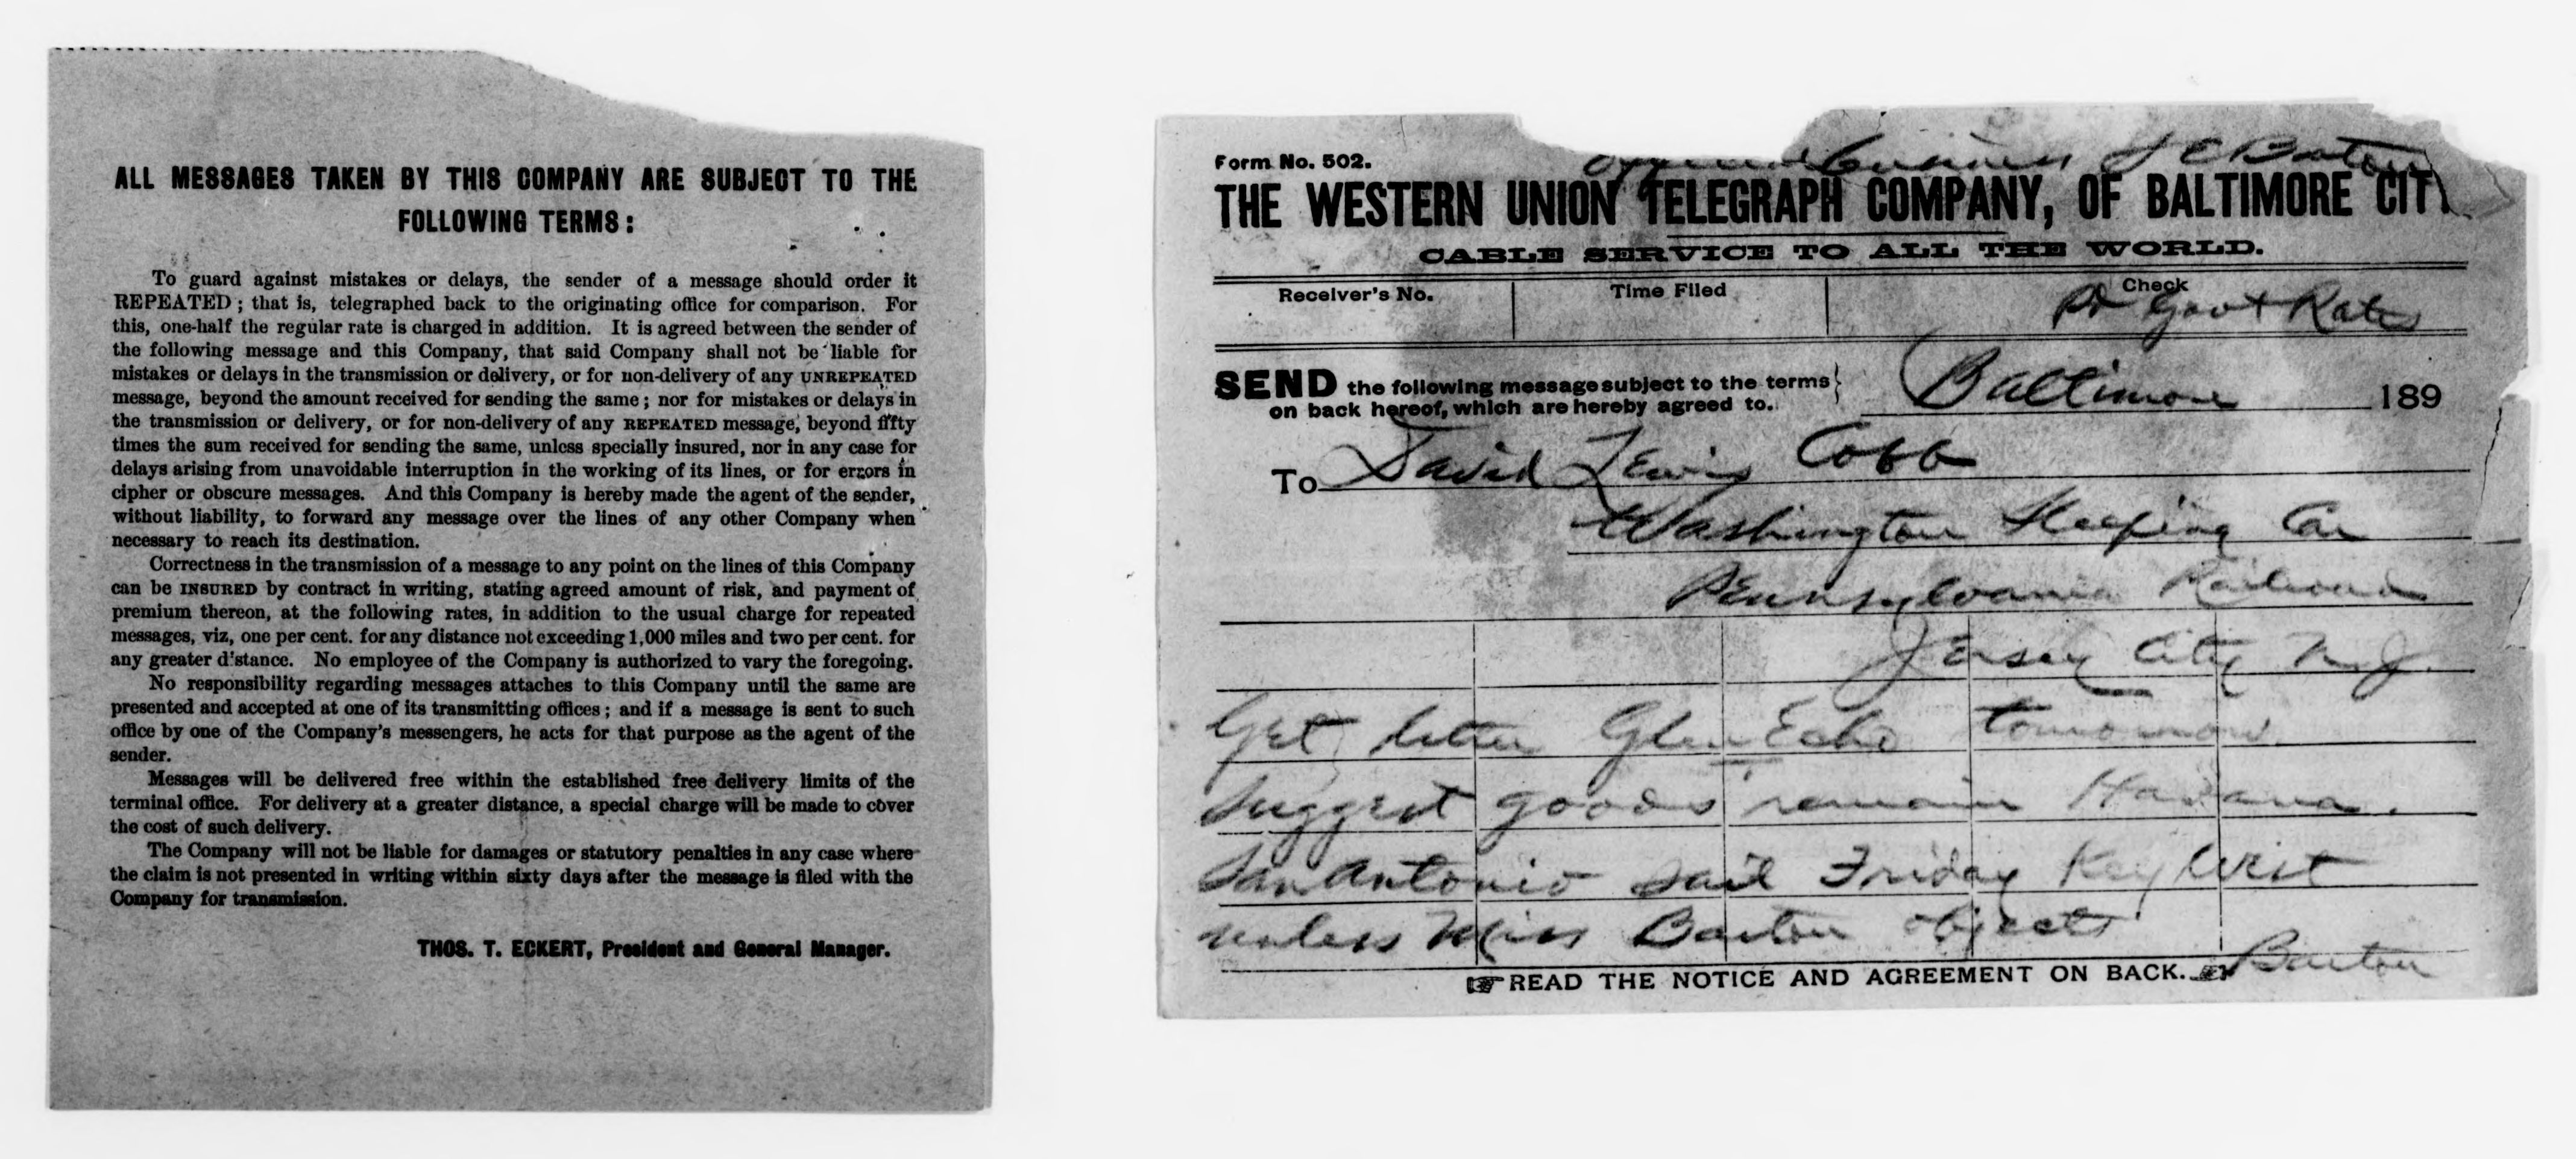 ALL MESSAGES TAKEN BY THIS COMPANY ARE SUBJECT TO THE
FOLLOWING TERMS:
To guard against mistakes or delays, the sender of a message should order it
REPEATED; that is, telegraphed back to the originating office for comparison. For
this, one-half the regular rate is charged in addition. It is agreed between the sender of
the following message and this Company, that said Company shall not be liable for
mistakes or delays in the transmission or delivery, or for non-delivery of any UNREPEATED
message, beyond the amount received for sending the same; nor for mistakes or delays in
the transmission or delivery, or for non-delivery of any REPEATED message, beyond fifty
times the sum received for sending the same, unless specially insured, nor in any case for
delays arising from unavoidable interruption in the working of its lines, or for errors in
cipher or obscure messages. And this Company is hereby made the agent of the sender,
without liability, to forward any message over the lines of any other Company when
necessary to reach its destination.
Correctness in the transmission of a message to any point on the lines of this Company
can be INSURED by contract in writing, stating agreed amount of risk, and payment of
premium thereon, at the following rates, in addition to the usual charge for repeated
messages, viz, one per cent. for any distance not exceeding 1,000 miles and two per cent. for
any greater d'stance. No employee of the Company is authorized to vary the foregoing.
No responsibility regarding messages attaches to this Company until the same are
presented and accepted at one of its transmitting offices; and if a message is sent to such
office by one of the Company's messengers, he acts for that purpose as the agent of the
sender.
Messages will be delivered free within the established free delivery limits of the
terminal office. For delivery at a greater distance, a special charge will be made to cover
the cost of such delivery.
The Company will not be liable for damages or statutory penalties in any case where
the claim is not presented in writing within sixty days after the message is filed with the
Company for transmission.
THOS. T. ECKERT, President and General Manager.
Form No. 502.
business
THE WESTERN UNION TELEGRAPH COMPANY, OF BALTIMORE CIT
CABLE SERVICE TO ALL THE WORLD.
Receiver's No. Time Filed Check
Pd Govt Rates
SEND the following message subject to the terms
on back hereof, which are hereby agreed to.
Baltimore 189
To David Lewis Cobb
Washington Sleeping Car
Pennsylvania Railroad
Jersey City N.J.
Get letter Glen Echo tomorrow.
Suggest goods remain Havana.
San Antonio sail Friday Key West
unless Miss Barton objects
Barton
READ THE NOTICE AND AGREEMENT ON BACK.